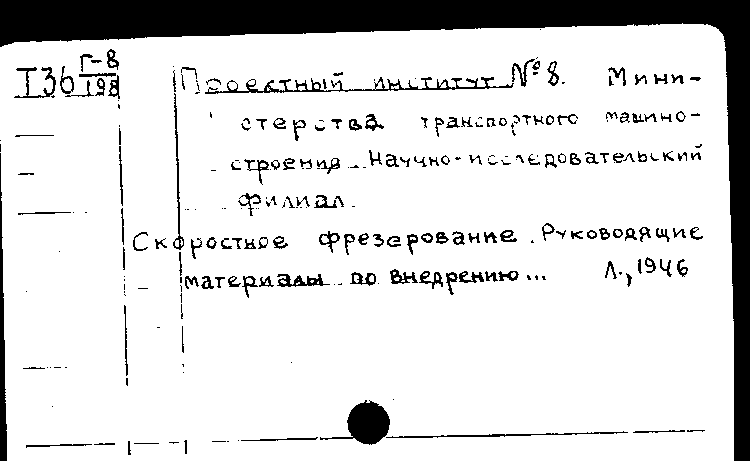 Т36 Г-8/198
Проектный институт № 8. Мини-
стерства транспортного машино-
строения. Научно-исследовательский
филиал.
Скоростное фрезерование. Руководящие
материалы по внедрению... Л., 1946